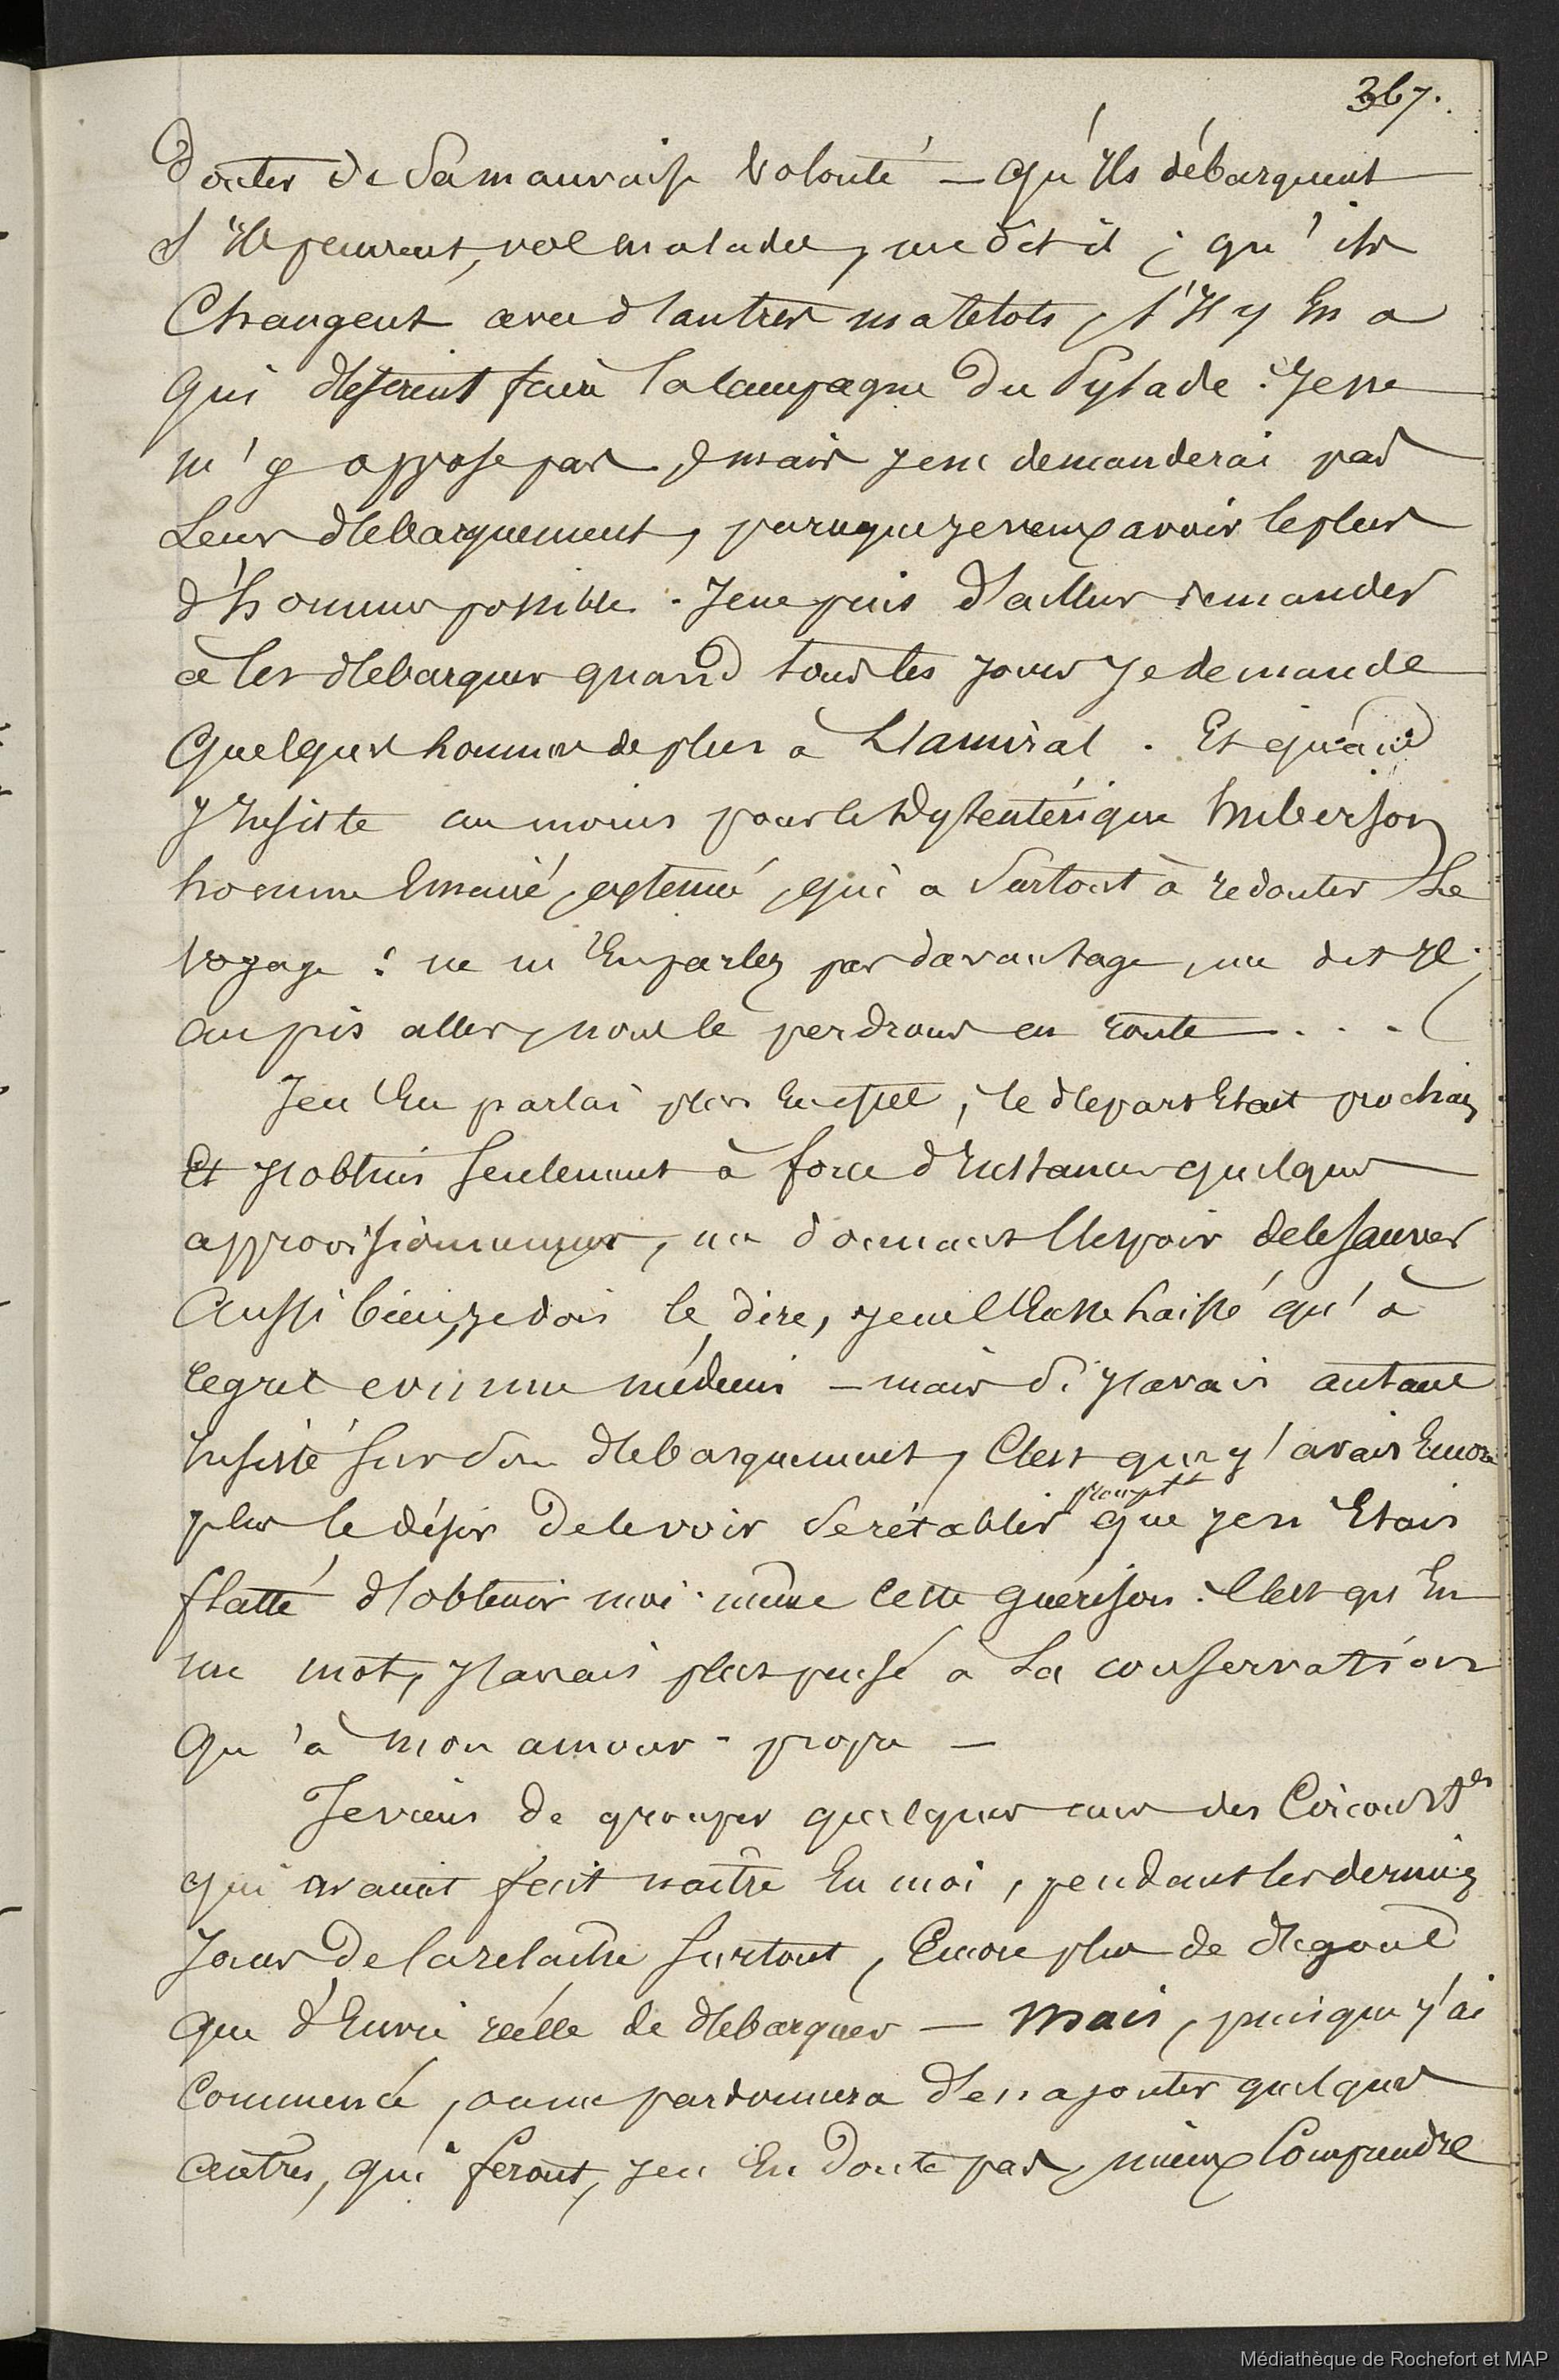 367.
Douter de Sa mauvaise Volonté — qu'Ils débarquent
s'Ils peuvent, vos malades, me dit il ; qu'ils
Changent avec d'autres matelots, s'Il y En a
qui désirent faire la campagne du Pylade : Je ne
m'y oppose pas, mais je ne demanderai pas
Leur débarquement, parceque je veux avoir le plus
d'hommes possible. Je ne puis d'ailleurs demander
à les débarquer quand tous les jours Je demande
quelques hommes de plus à L'amiral. Et quand
J'Insiste au moins pour le Dyssentérique Imberson
homme Emacié, exténué, qui a Surtout à redouter Le
voyage : ne m'En parlez pas davantage, me dit Il ;
au pis aller, nous le perdrons en route . . . (
Je n'En parlai plus En effet, le départ Etait prochain
Et J'obtins Seulement à force d'Instances quelques
approvisionnemens, me donnant l'espoir de le sauver
Aussi bien, je dois le dire, je ne l'Eusse laissé qu'à
regret comme médecin — mais Si J'avais autant
Insisté Sur Son débarquement, C'est que j'avais Encore
plus le désir de le voir Se rétablir prompt.t que je n'Etais
flatté d'obtenir moi-même cette guérison. C'est qu'En
un mot, J'avais plus pensé à Sa conservation
qu'à mon amour-propre —
Je viens de grouper quelques unes des Circonst.es
qui avaient fait naître En moi, pendant les derniers
Jours de la relâche Surtout, Encore plus de dégoût
que d'Envie réelle de débarquer — Mais, puisque j'ai
Commencé, on me pardonnera d'en ajouter quelques
autres, qui feront, je n'En doute pas, mieux Comprendre
Médiathèque de Rochefort et MAP